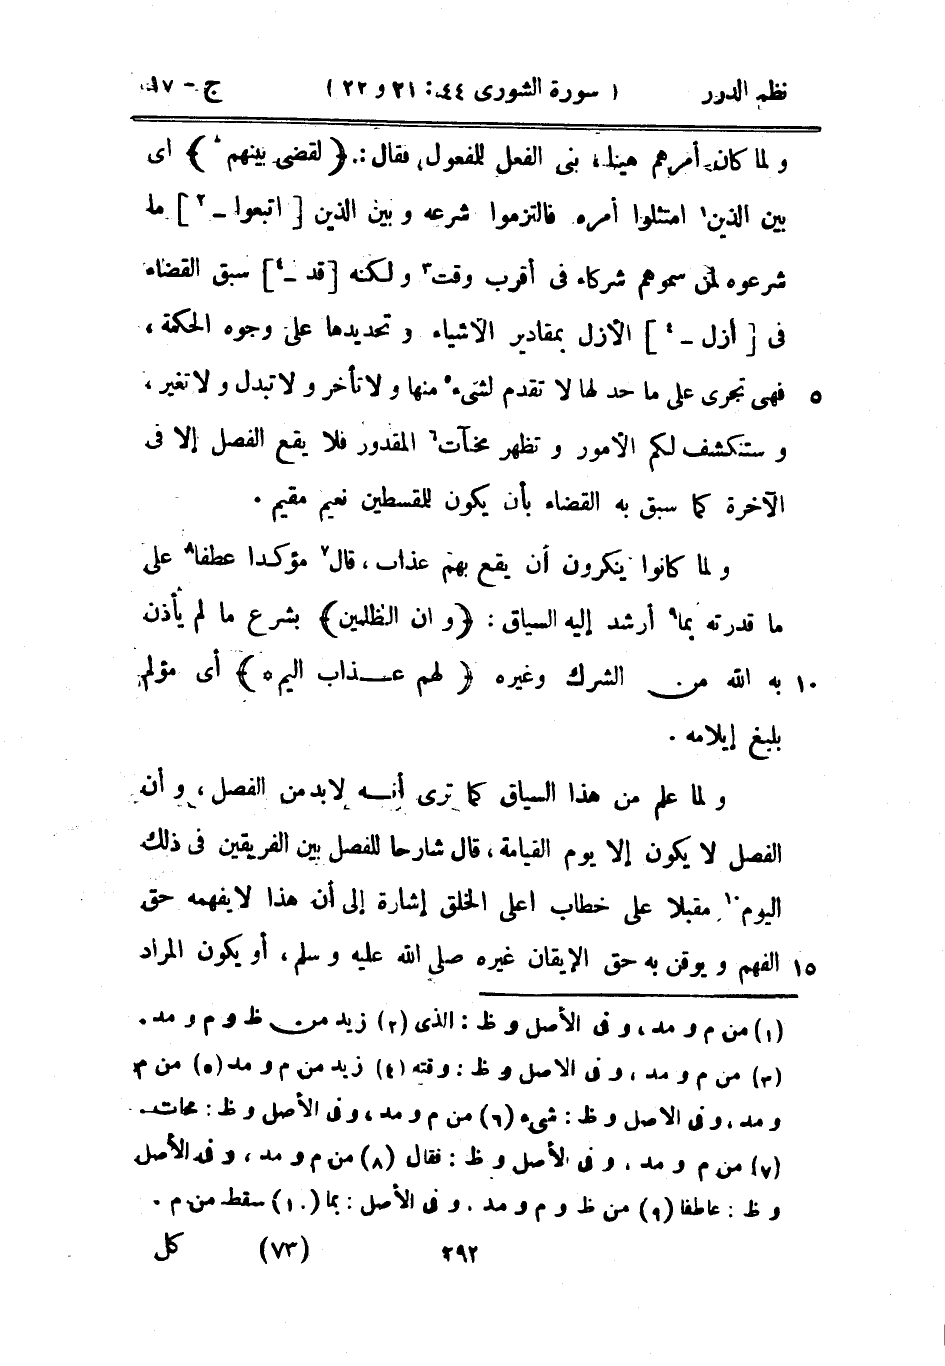 نظم الدرر ( سورة الشورى ٤٤: ٢١ و ٢٢ ) ج - ١٧
و لما كان أمرهم هينا، بنى الفعل للمفعول، فقال: ﴿ لقضى بينهم ﴾ اى
بين الذين١ امتثلوا أمره فالتزموا شرعه و بين الذين [ اتبعوا -٢ ] ما
شرعوه لمن سموهم شركاء فى أقرب وقت٣ و لكنه [ قد -٤ ] سبق القضاء
فى [ أزل -٤ ] الأزل بمقادير الأشياء و تحديدها على وجوه الحكمة،
فهى تجرى على ما حد لها لا تقدم لشىء٥ منها و لا تأخر و لا تبدل و لا تغير، ٥
و ستنكشف لكم الأمور و تظهر مخبآت٦ المقدور فلا يقع الفصل إلا فى
الآخرة كما سبق به القضاء بأن يكون للمقسطين نعيم مقيم .
و لما كانوا ينكرون أن يقع بهم عذاب، قال٧ مؤكدا عطفا٨ على
ما قدرته بما٩ أرشد إليه السياق: ﴿ و ان الظلمين ﴾ بشرع ما لم يأذن
به الله من الشرك وغيره ﴿ لهم عذاب اليم ﴾ أى مؤلم ١٠
بليغ إيلامه .
و لما علم من هذا السياق كما ترى أنه لا بد من الفصل، و أن
الفصل لا يكون إلا يوم القيامة، قال شارحا للفصل بين الفريقين فى ذلك
اليوم١٠ مقبلا على خطاب اعلى الخلق إشارة إلى أن هذا لا يفهمه حق
الفهم و يوقن به حق الإيقان غيره صلى الله عليه و سلم، أو يكون المراد ١٥
(١) من م و مد، و فى الأصل و ظ : الذى (٢) زيد من ظ و م و مد .
(٣) من م و مد، و فى الاصل و ظ : وقته (٤) زيد من م و مد (٥) من م
و مد، و فى الاصل و ظ : شىء (٦) من م و مد، و فى الأصل و ظ : محات .
(٧) من م و مد، و فى الأصل و ظ : فقال (٨) من م و مد، و فى الأصل
و ظ : عاطفا (٩) من ظ و م و مد . و فى الأصل : بما (١٠) سقط من م .
٢٩٢ (٧٣) كل